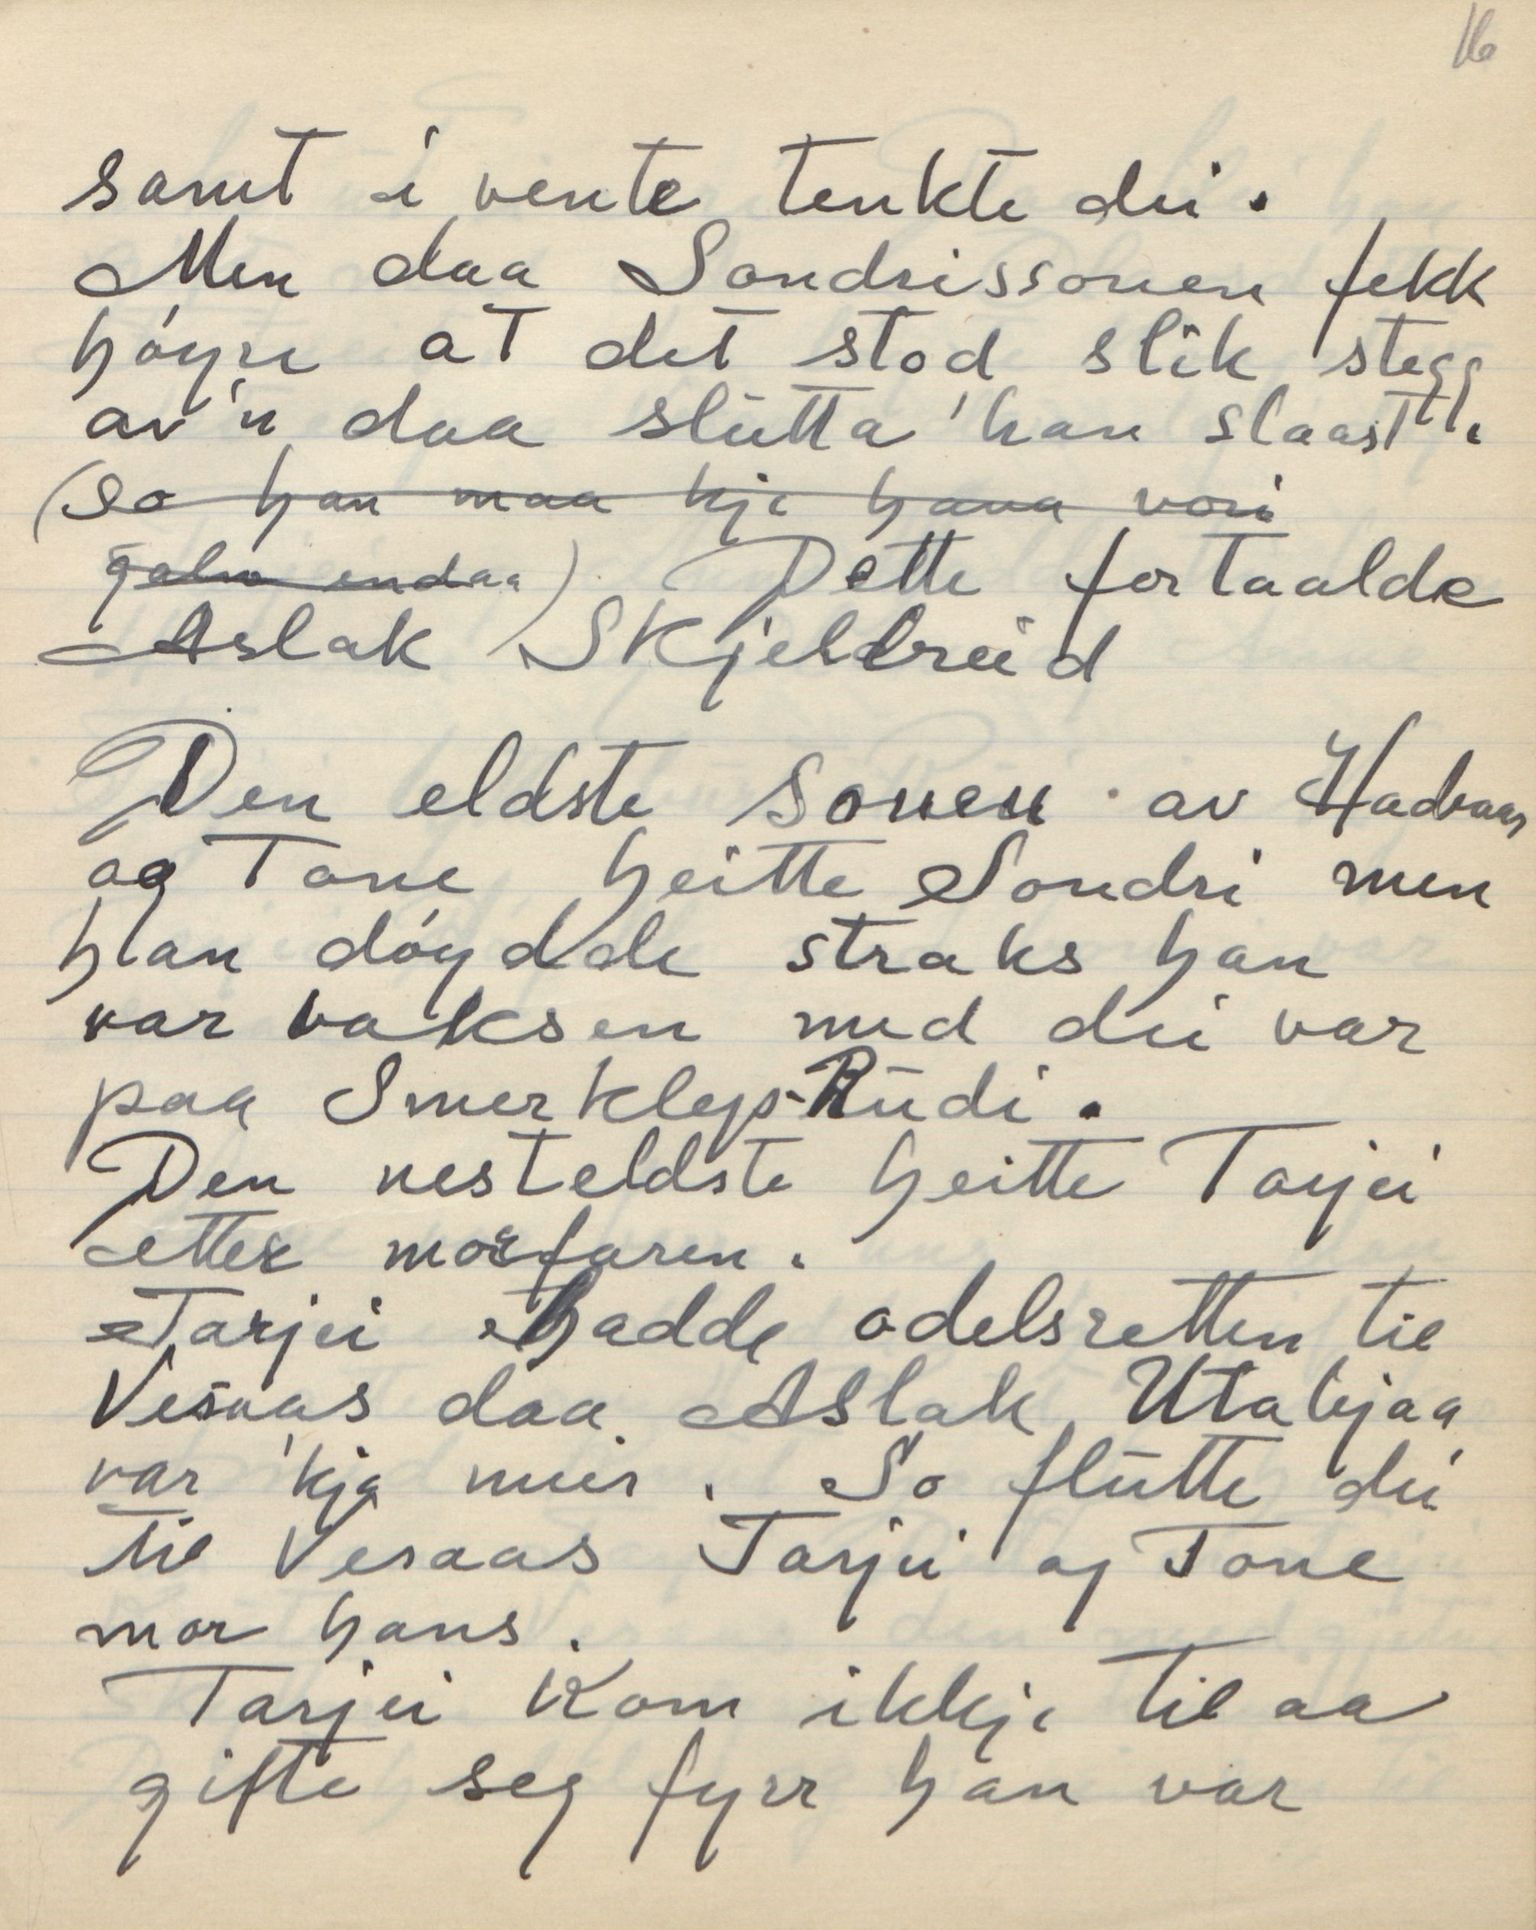 16
samt i vente tenkte dei.
Men daa Sondrissonen fekk
høyre at det stod slik stegg
av'n daa slutta 'han slaast.
(so han maa kje hava vori
galin endaa) Dette fortaalde
Aslak Skjeldreid
Den eldste sonen av Hadvaar
og Tone heitte Sondri men
han døydde straks han
var vaksen med dei var
paa Smerkleps-Rudi.
Den nesteldste heitte Tarjei
etter morfaren.
Tarjei hadde odelsretten til
Vesaas daa Aslak Utabjaa
var 'kje meir. So flutte dei
til Vesaas Tarjei og Tone
mor hans.
Tarjei kom ikkje til aa
gifte seg fyrr han var